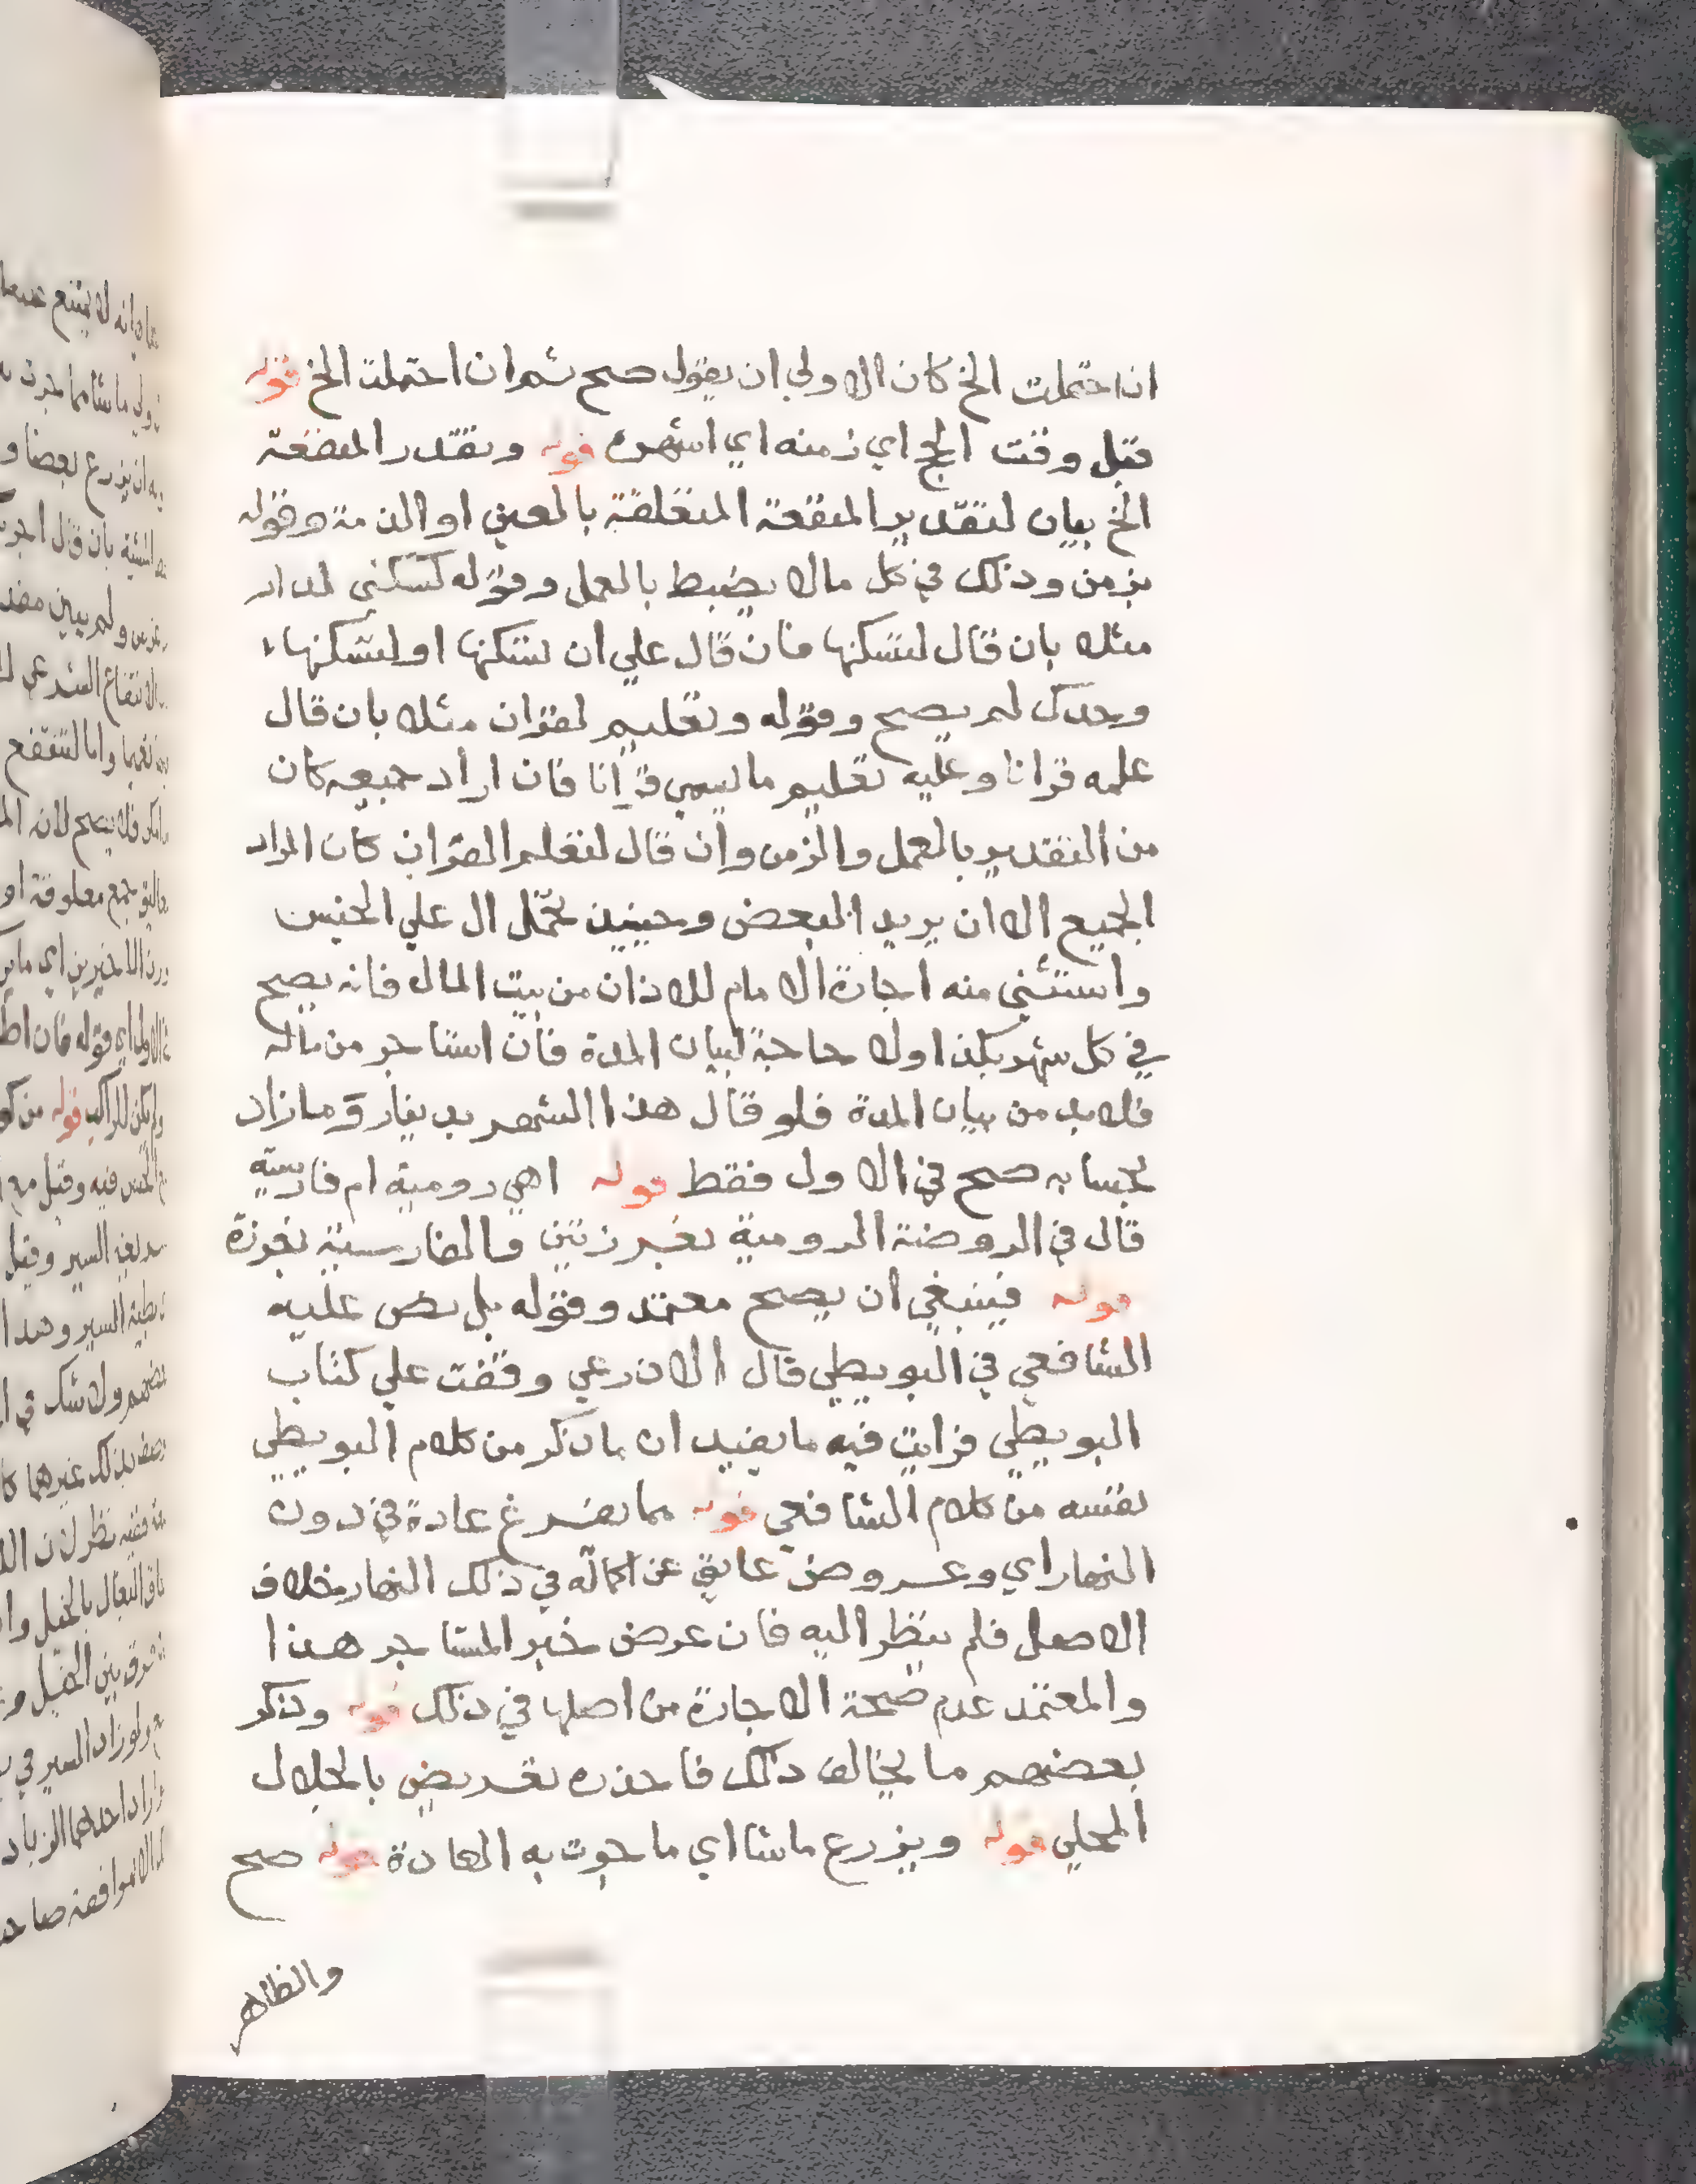 ان احتملت الخ كان الاولي ان يقول صح ثم ان احتملت الخ قوله
قبل وقت الحج اي زمنه اي اشهره قوله وتقدر المنفعة
الخ بيان لتقدير المنفعة المتعلقة بالعين او الذمة وقوله
بزمن وذلك في كل مالا يضبط بالعمل وقوله كسكني لدار
مثلا بان قال لتسكنها فان قال علي ان تسكنها او لتسكنها
وحدك لم يصح وقوله وتعليم لقران مثلا بان قال
علمه قرانا وعليه تعليم ما يسمي قرانا فان اراد جميعه كان
من التقدير بالعمل والزمن وان قال لتعلم القران كان المراد
الجميع الا ان يريد البعض وحينيذ تحمل ال علي الجنس
واستثني منه اجارة الامام للاذان من بيت المال فانه يصح
في كل شهر بكذا ولا حاجة لبيان المدة فان استاجر من ماله
فلا بد من بيان المدة فلو قال هذا الشهر بدينار وما زاد
بحسابه صح في الاول فقط قوله اهي رومية ام فارسية
قال في الروضة الرومية بغرزتين والفارسية بغرزة
قوله فينبغي ان يصح معتمد وقوله بل نص عليه
الشافعي في البويطي قال الاذرعي وقفت علي كتاب
البويطي فرايت فيه ما يفيد ان ما ذكر من كلام البويطي
نفسه من كلام الشافعي قوله مما يفرغ عادة في دون
النهار اي وعروض عايق عن اكماله في ذلك النهار خلاف
الاصل فلم ينظر اليه فان عرض خير المستاجر هذا
والمعتمد عدم صحة الاجارة من اصلها في ذلك قوله وذكر
بعضهم ما يخالف ذلك فاحذره تعريض بالجلال
المحلي قوله ويزرع ماشا اي ما جرت به العادة قوله صح
والظاهر